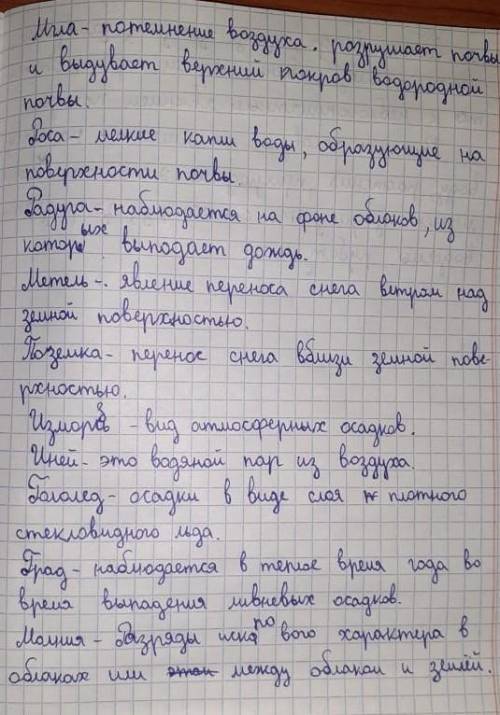 Мгла - потемнение воздуха. разрушает почвы
и выдувает верхний покров водородной
почвы.
Роса - мелкие капли воды, образующие на
поверхности почвы.
Радуга - наблюдается на фоне облаков, из
которых выпадает дождь.
Метель - явление переноса снега ветром над
земной поверхностью.
Поземка - перенос снега вблизи земной пове-
рхностью.
Изморозь - вид атмосферных осадков.
Иней - это водяной пар из воздуха.
Гололед - осадки в виде слоя плотного
стекловидного льда.
Град - наблюдается в теплое время года во
время выпадения ливневых осадков.
Молния - Разряды искрового характера в
облаках или между облакои и землёй.